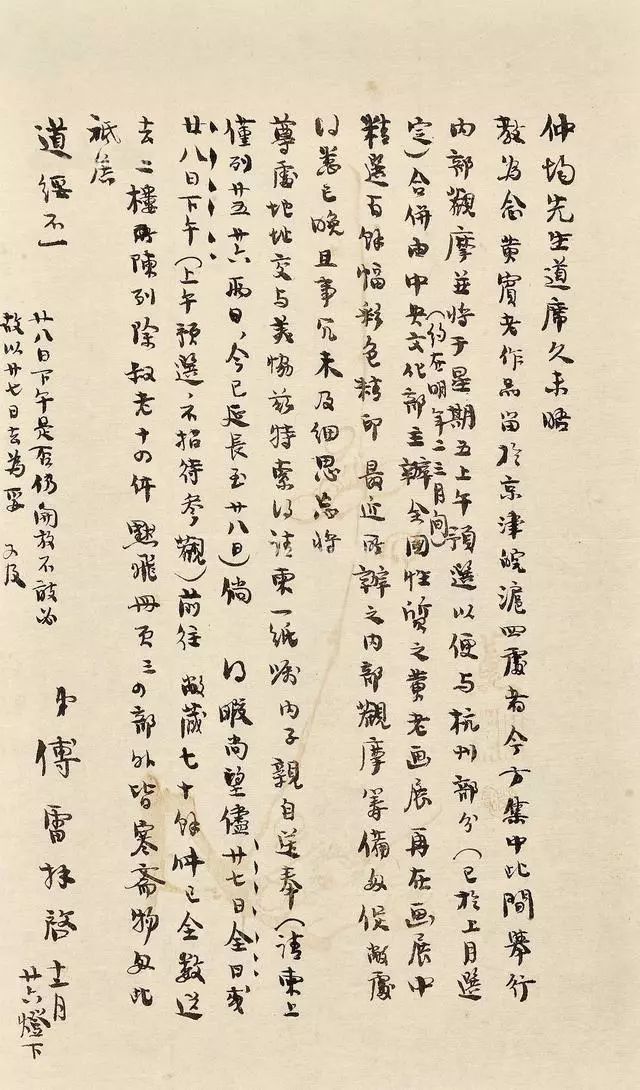 仲均先生道席久未晤
教为念黄賓老作品留於京津皖滬四處者今方集中此間舉行
内部觀摩並將于星期五上午預選以便与杭州部分(已於上月選
定)合併由中央文化部主辦全國性質之黄老画展(約在明年二三月间)再在画展中
精選百餘幅彩色精印最近所辦之内部觀摩籌備匆促敝處
得悉已晚且事冗未及细思忘将
尊處地址交与美協兹特索得請柬一紙嘱内子親自送奉(請柬上
僅列廿五廿六兩日,今已延長至廿八日)倘 得暇尚望儘廿七日全日或
廿八日下午(上午預選,不招待參觀)前往 敝藏七十餘件已全數送
去二樓所陳列除叔老十の件 默飛册頁三の部外皆寒齋物匆此
祇應
道綏不一
弟傅雷拜啓 十一月
廿六燈下
廿八日下午是否仍開放不敢必
故以廿七日去為妥 又及